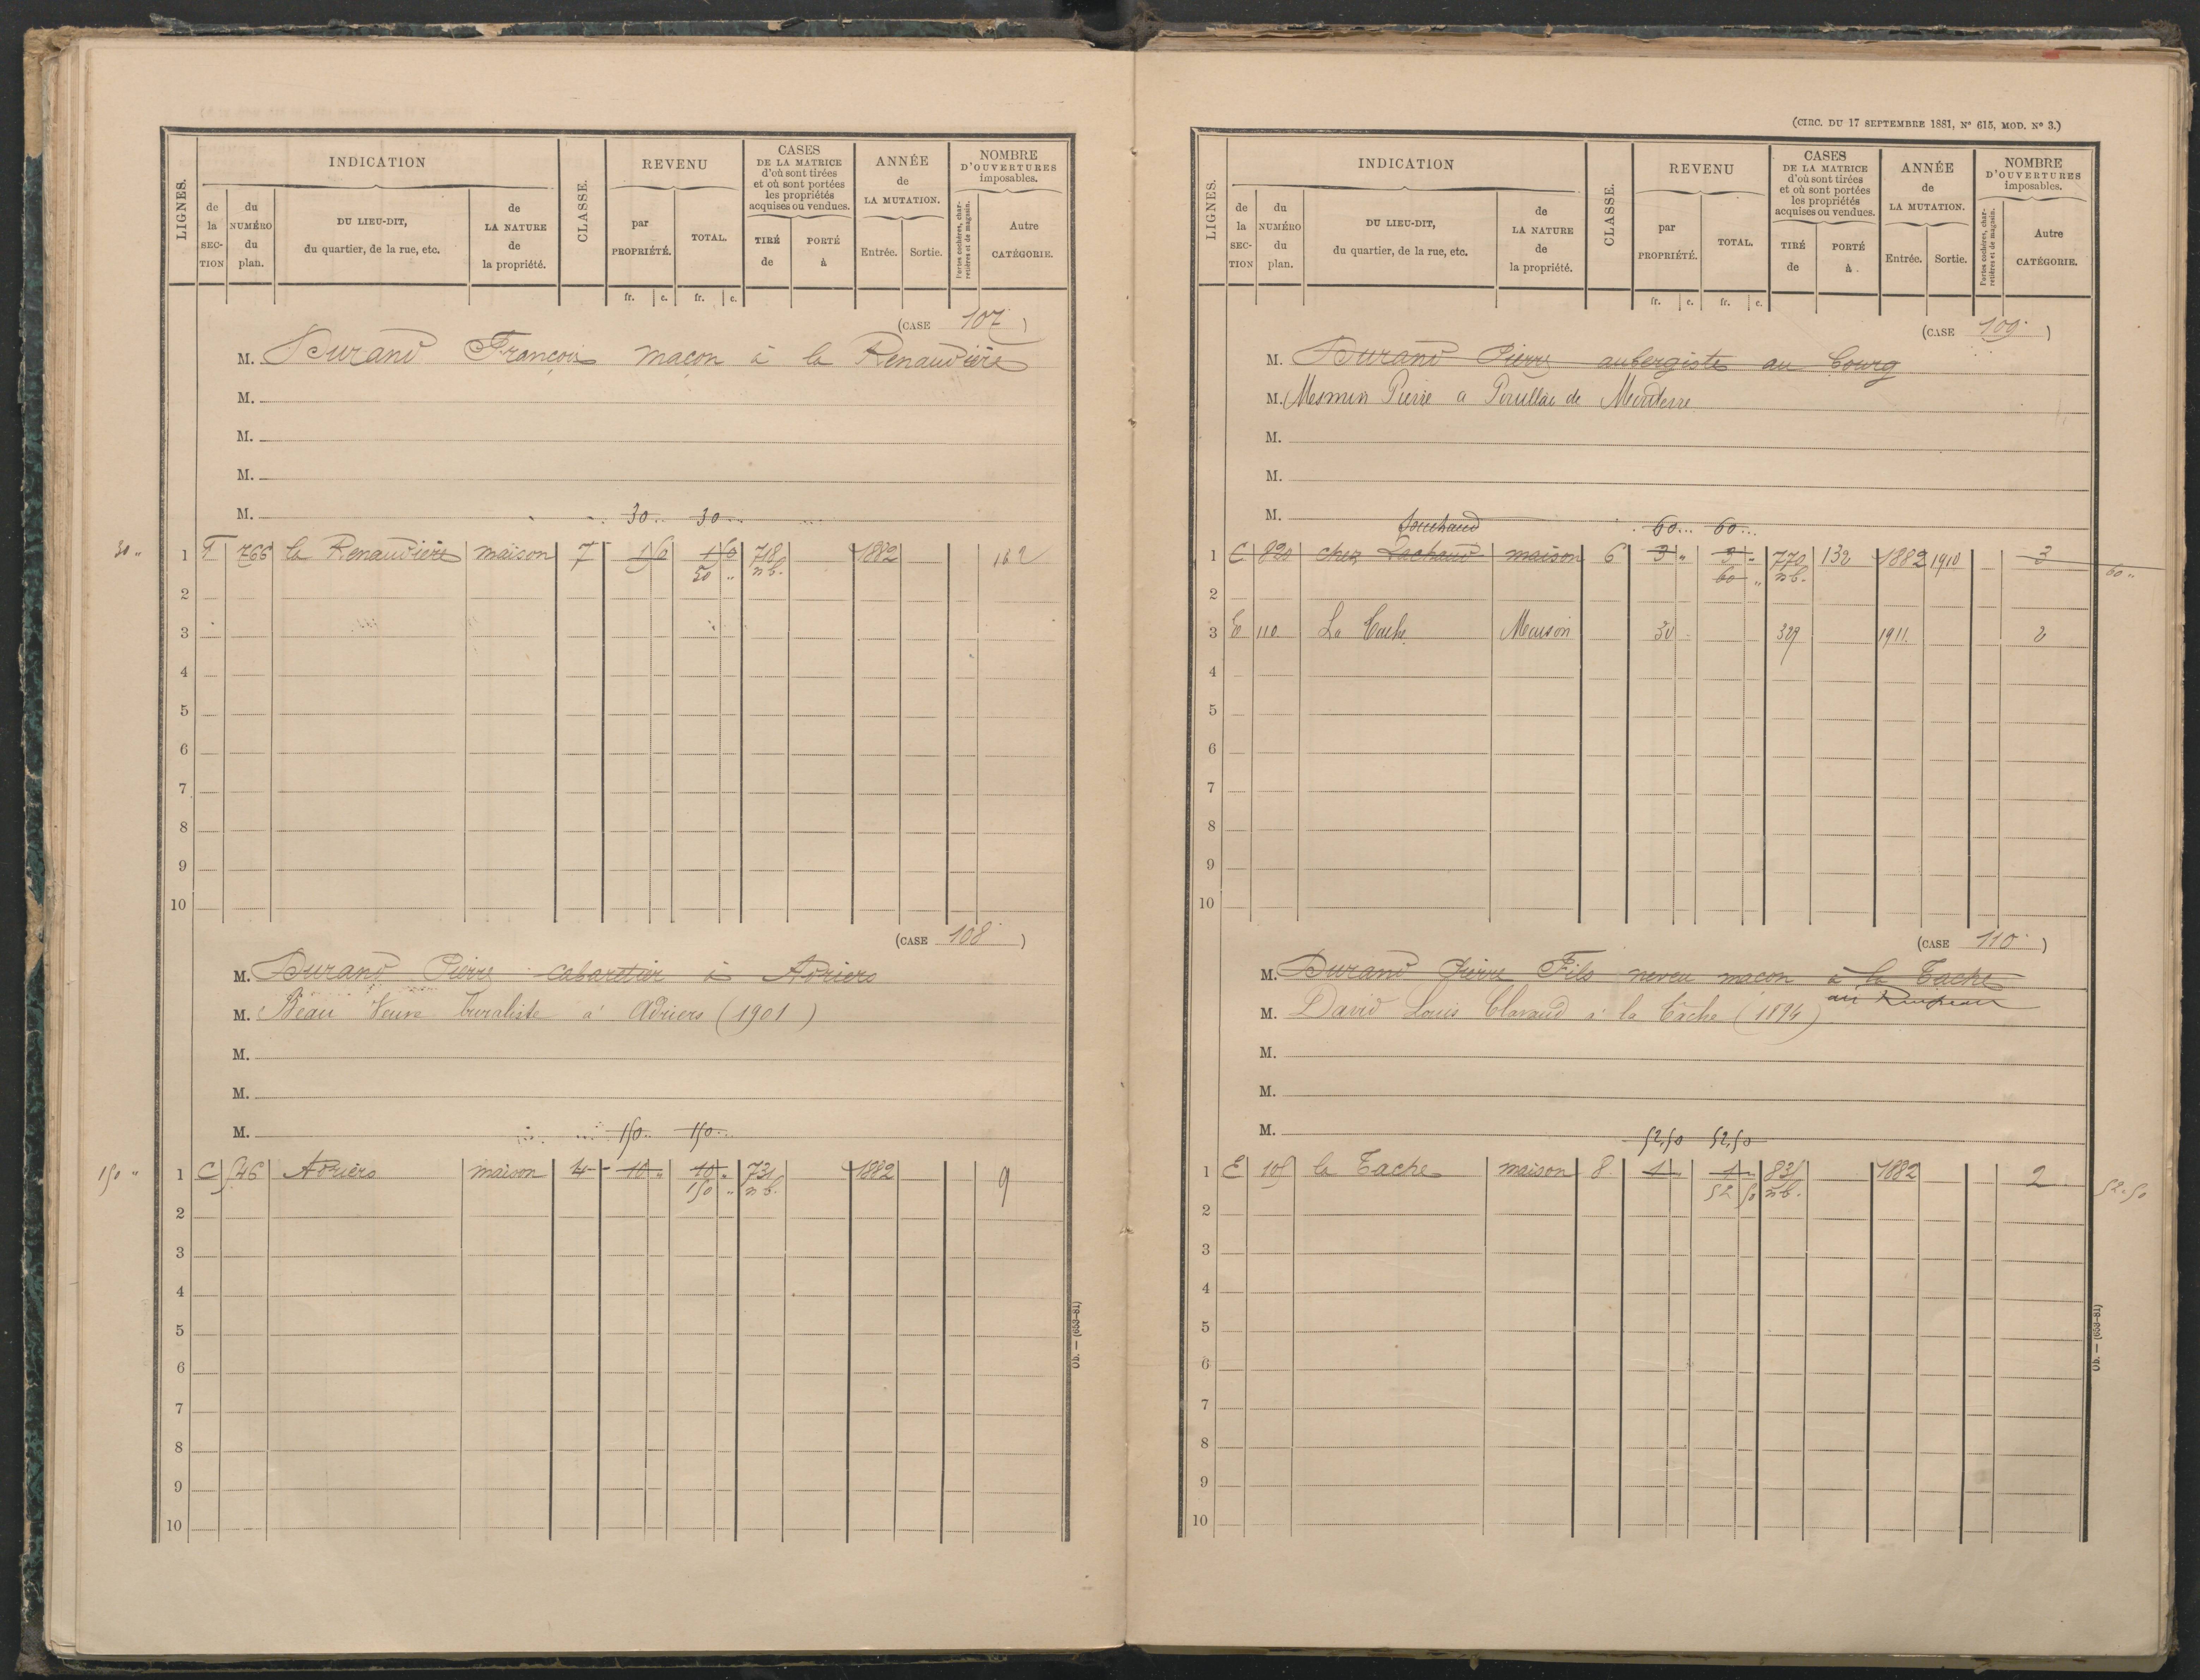 LIGNES.
INDICATION
de la SECTION
du NUMÉRO du plan.
DU LIEU-DIT, du quartier, de la rue, etc.
de LA NATURE de la propriété.
CLASSE.
REVENU
par PROPRIÉTÉ.
TOTAL.
fr. c. fr. c.
CASES DE LA MATRICE d'où sont tirées et où sont portées les propriétés acquises ou vendues.
TIRÉ de
PORTÉ à
ANNÉE de LA MUTATION.
Entrée. Sortie.
NOMBRE D'OUVERTURES imposables.
Portes cochères, charretières et de magasin.
Autre CATÉGORIE.
(CASE 107)
M. Durand François maçon à la Renaudière
M.
M.
M.
M. 30 30
30 "
1 F 766 la Renaudière maison 7 718 1882
50 " nb.
2
3
4
5
6
7
8
9
10
(CASE 108)
M. Durand Pierre cabaretier à Adriers
M. Beau Veuve buraliste à Adriers (1901)
M.
M.
M. 150 150
150 "
1 C 546 Adriers maison 4 10 " 10 " 731 1882 9
150 " nb.
2
3
4
5
6
7
8
9
10
Ob. — (653-81)
(CIRC. DU 17 SEPTEMBRE 1881, N° 615, MOD. N° 3.)
LIGNES.
INDICATION
de la SECTION
du NUMÉRO du plan.
DU LIEU-DIT, du quartier, de la rue, etc.
de LA NATURE de la propriété.
CLASSE.
REVENU
par PROPRIÉTÉ.
TOTAL.
fr. c. fr. c.
CASES DE LA MATRICE d'où sont tirées et où sont portées les propriétés acquises ou vendues.
TIRÉ de
PORTÉ à
ANNÉE de LA MUTATION.
Entrée. Sortie.
NOMBRE D'OUVERTURES imposables.
Portes cochères, charretières et de magasin.
Autre CATÉGORIE.
(CASE 109)
M. Durand Pierre aubergiste au bourg
M. Mesmin Pierre a
M.
M.
M. 60 60
1 C 820 chez Lachaud maison 6 3 " 3 " 770 132 1882 1910 3
60 " nb. 60 "
2
3 E 110 La Tache Maison 30 329 1911 2
4
5
6
7
8
9
10
(CASE 110)
M. Durand Pierre Fils neveu maçon à la Tache
M. David Louis Clavaud à la Tâche (1894)
M.
M.
M. 52,50 52,50
1 E 105 la Tache maison 8 1 " 1 " 835 1882 2
52 50 nb. 52.50
2
3
4
5
6
7
8
9
10
Ob. — (653-81)